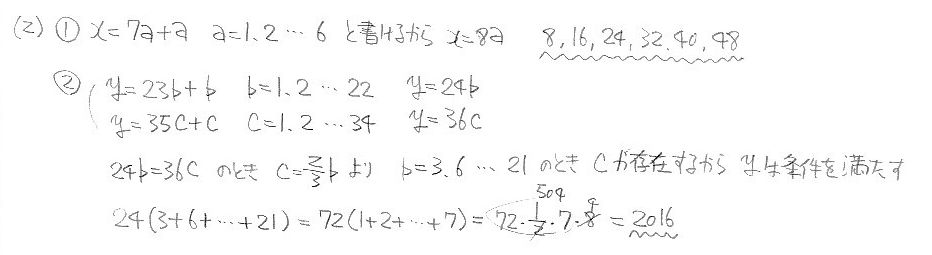 (2) ① x=7a+a a=1.2…6 と書けるから x=8a 8,16,24,32.40,48
② y=23b+b b=1.2…22 y=24b
y=35c+c c=1.2…34 y=36c
24b=36c のとき c=2/3b より b=3.6…21 のとき cが存在するから yは条件を満たす
24(3+6+…+21)=72(1+2+…+7)=72・1/2・7・8=2016
504 4